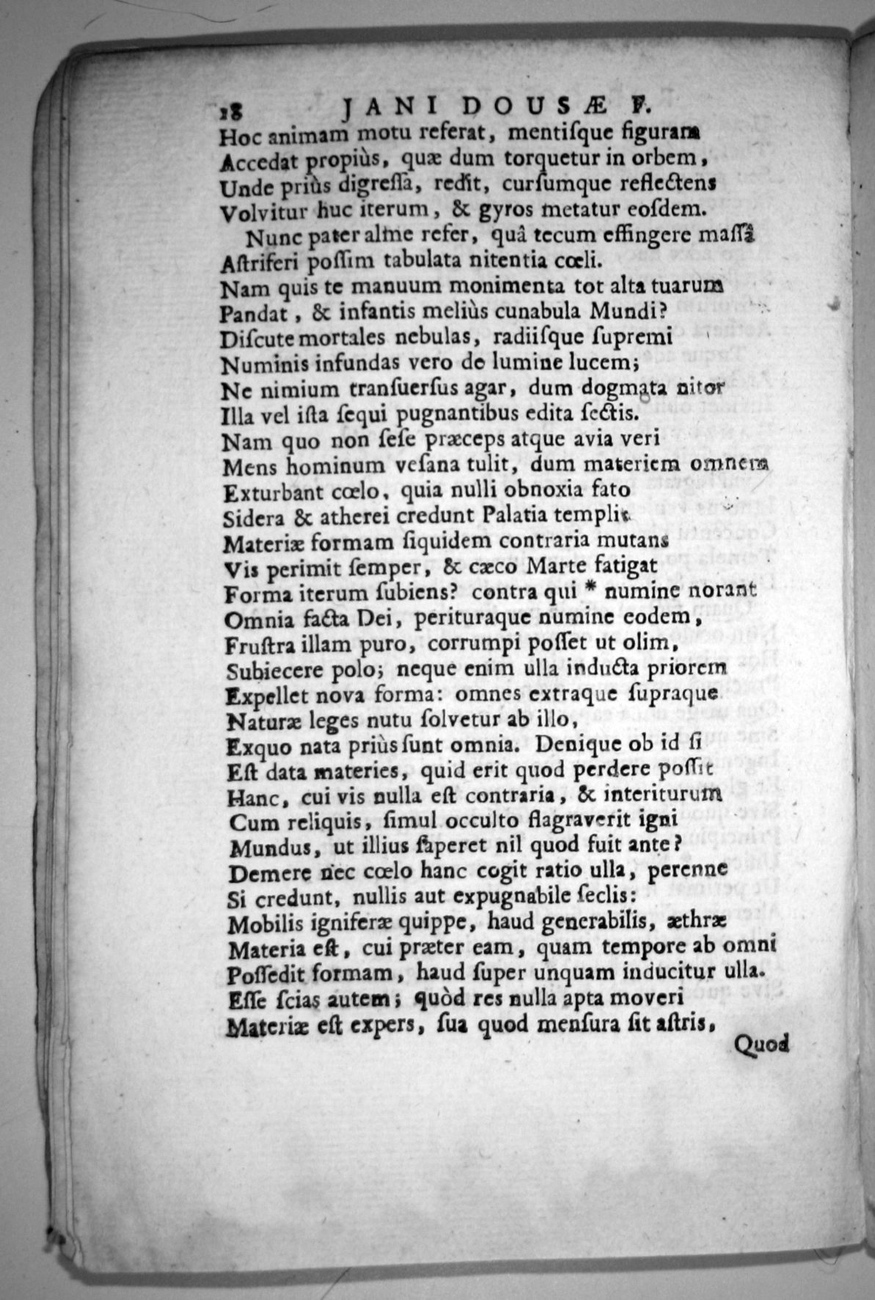 18 JANI DOUSÆ F.
Hoc animam motu referat, mentiſque figuram
Accedat propiùs, quæ dum torquetur in orbem,
Unde priùs digreſſa, redit, curſumque reflectens
Volvitur huc iterum, & gyros metatur eoſdem.
Nunc pater alme refer, quâ tecum effingere maſſâ
Aſtriferi poſſim tabulata nitentia cœli.
Nam quis te manuum monimenta tot alta tuarum
Pandat, & infantis meliùs cunabula Mundi?
Diſcute mortales nebulas, radiiſque ſupremi
Numinis infundas vero de lumine lucem;
Ne nimium tranſuerſus agar, dum dogmata nitor
Illa vel iſta ſequi pugnantibus edita ſectis.
Nam quo non ſeſe præceps atque avia veri
Mens hominum veſana tulit, dum materiem omnem
Exturbant cœlo, quia nulli obnoxia fato
Sidera & atherei credunt Palatia templi.
Materiæ formam ſiquidem contraria mutans
Vis perimit ſemper, & cæco Marte fatigat
Forma iterum ſubiens? contra qui * numine norant
Omnia facta Dei, perituraque numine eodem,
Fruſtra illam puro, corrumpi poſſet ut olim,
Subiecere polo; neque enim ulla inducta priorem
Expellet nova forma: omnes extraque ſupraque
Naturæ leges nutu ſolvetur ab illo,
Exquo nata priùs ſunt omnia. Denique ob id ſi
Eſt data materies, quid erit quod perdere poſſit
Hanc, cui vis nulla eſt contraria, & interiturum
Cum reliquis, ſimul occulto flagraverit igni
Mundus, ut illius ſaperet nil quod fuit ante?
Demere nec cœlo hanc cogit ratio ulla, perenne
Si credunt, nullis aut expugnabile ſeclis:
Mobilis igniferæ quippe, haud generabilis, æthræ
Materia eſt, cui præter eam, quam tempore ab omni
Poſſedit formam, haud ſuper unquam inducitur ulla.
Eſſe ſcias autem; quòd res nulla apta moveri
Materiæ eſt expers, ſua quod menſura ſit aſtris,
Quod